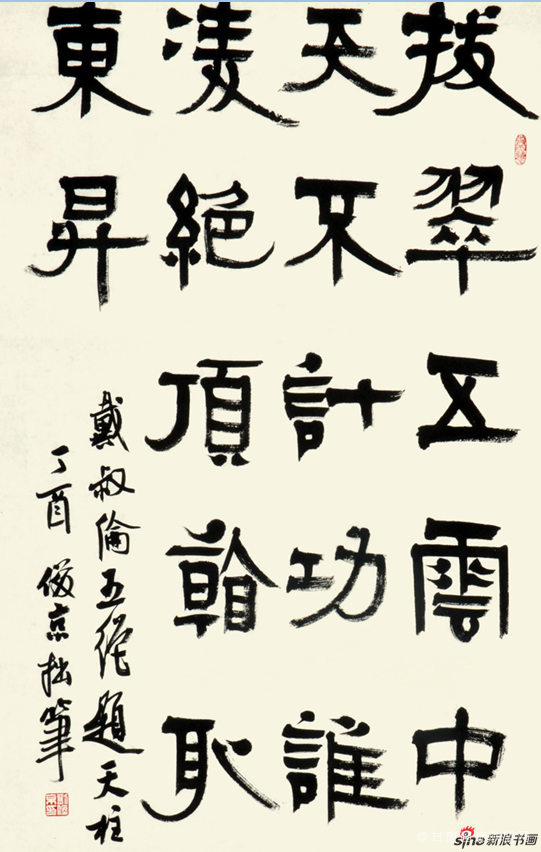 拔翠五雲中
天不計功誰
凌絕頂看取
東昇
戴叔倫五絕題天柱
丁酉俊京拙筆
sina新浪书画